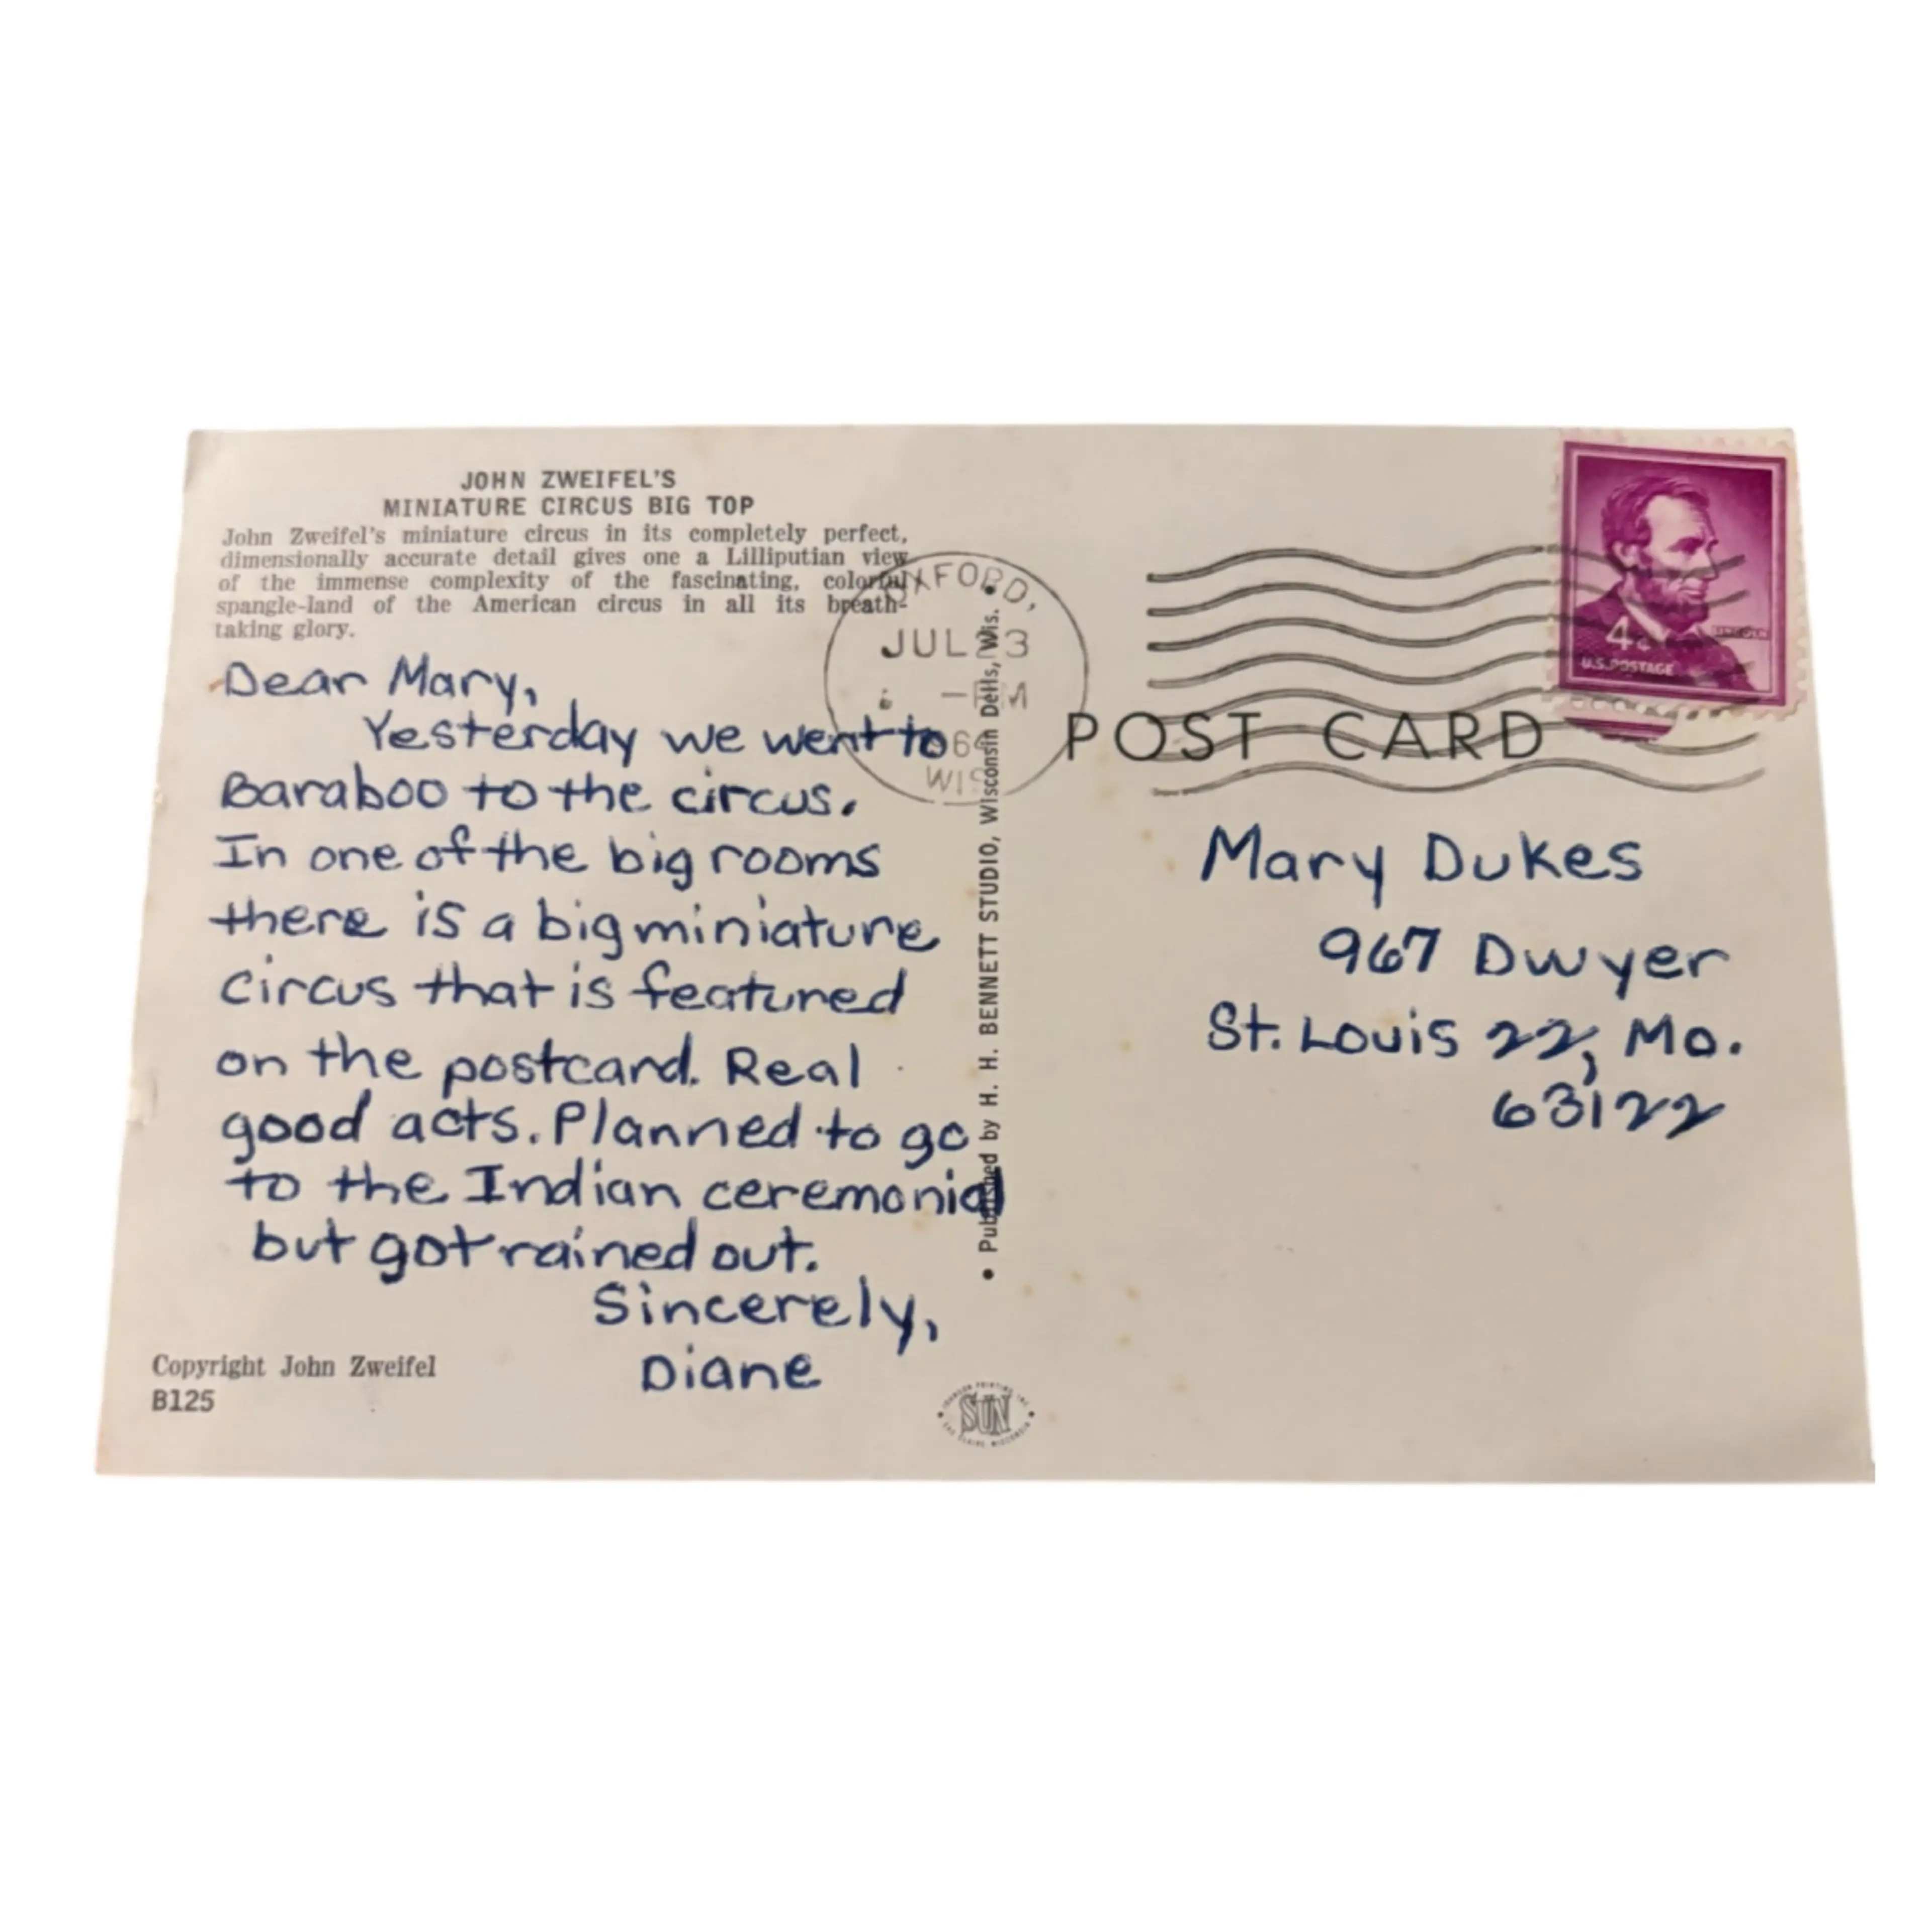 JOHN ZWEIFEL'S
MINIATURE CIRCUS BIG TOP
John Zweifel's miniature circus in its completely perfect,
dimensionally accurate detail gives one a Lilliputian view
of the immense complexity of the fascinating, colorful
spangle-land of the American circus in all its breath-
taking glory.
Dear Mary,
Yesterday we went to
Baraboo to the circus.
In one of the big rooms
there is a big miniature
circus that is featured
on the postcard. Real
good acts. Planned to go
to the Indian ceremonial
but got rained out.
Sincerely,
Diane
Copyright John Zweifel
B125
• Published by H. H. BENNETT STUDIO, Wisconsin Dells, Wis. •
SUN
OXFORD,
JUL 23
PM
WIS
4¢
LINCOLN
U.S. POSTAGE
POST CARD
Mary Dukes
967 Dwyer
St. Louis 22, Mo.
63122